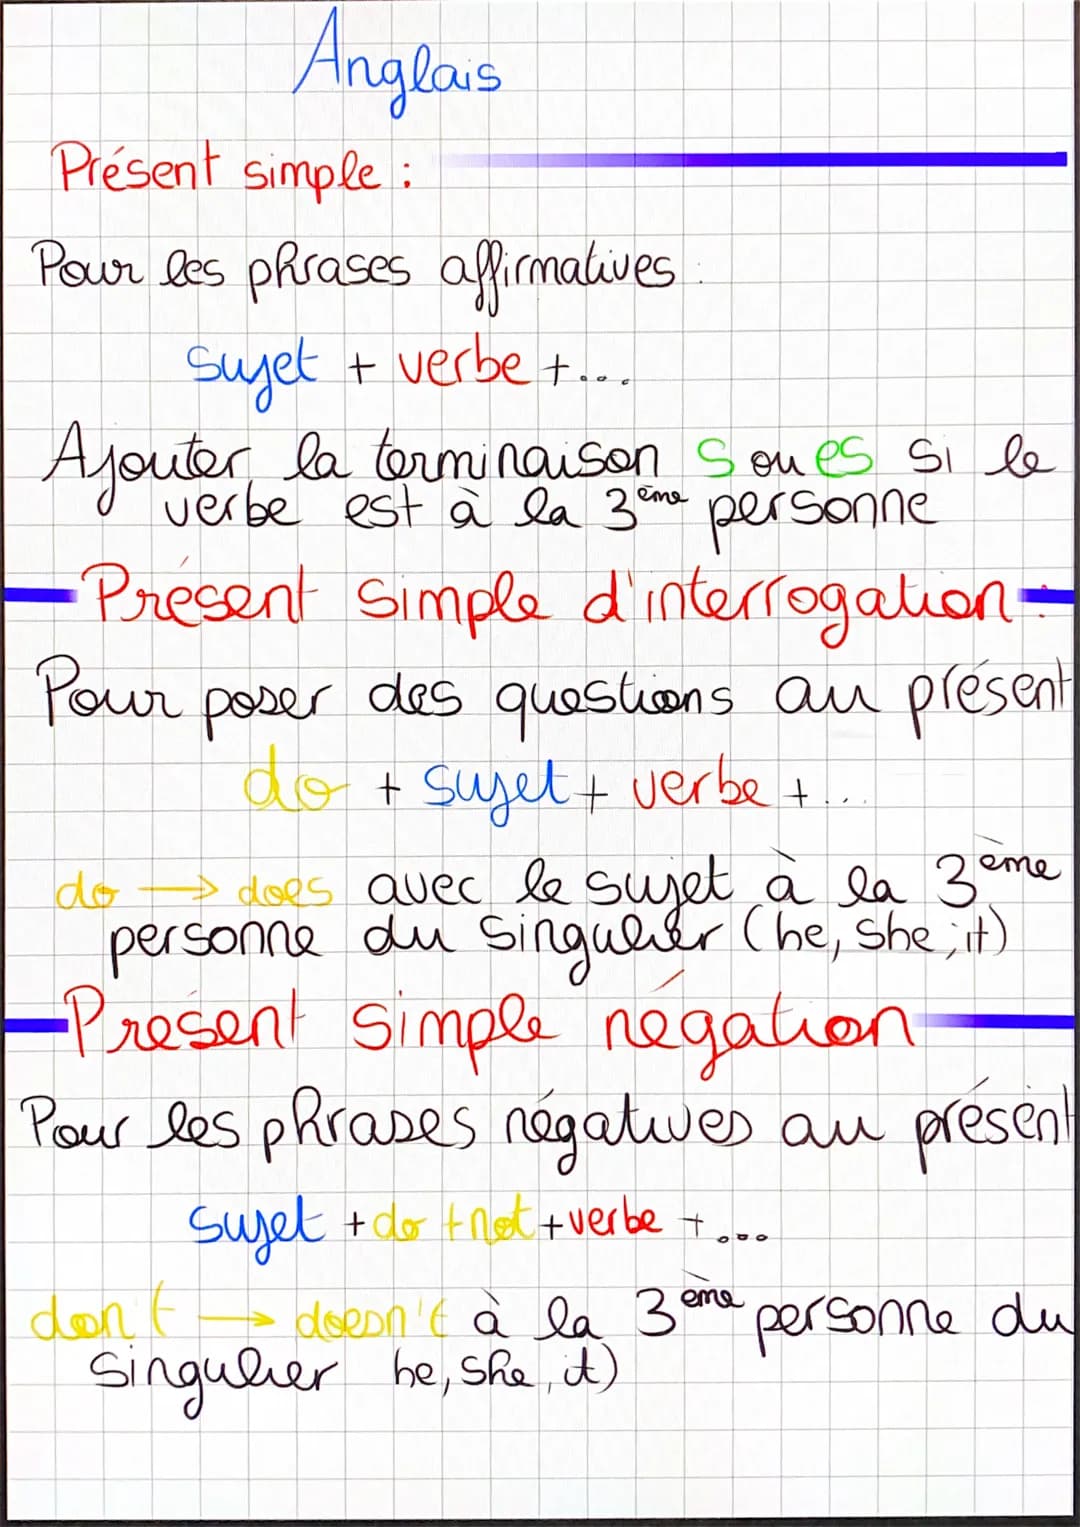 Anglais
Présent simple :
Pour les phrases affirmatives :
sujet + verbe + ...
Ajouter la terminaison s ou es si le
verbe est à la 3ème personne
Présent simple d'interrogation :
Pour poser des questions au présent
do + sujet + verbe + ...
do → does avec le sujet à la 3ème
personne du singulier (he, she ; it)
Présent simple négation
Pour les phrases négatives au présent
sujet + do + not + verbe + ...
don't → doesn't à la 3ème personne du
singulier he, she, it)